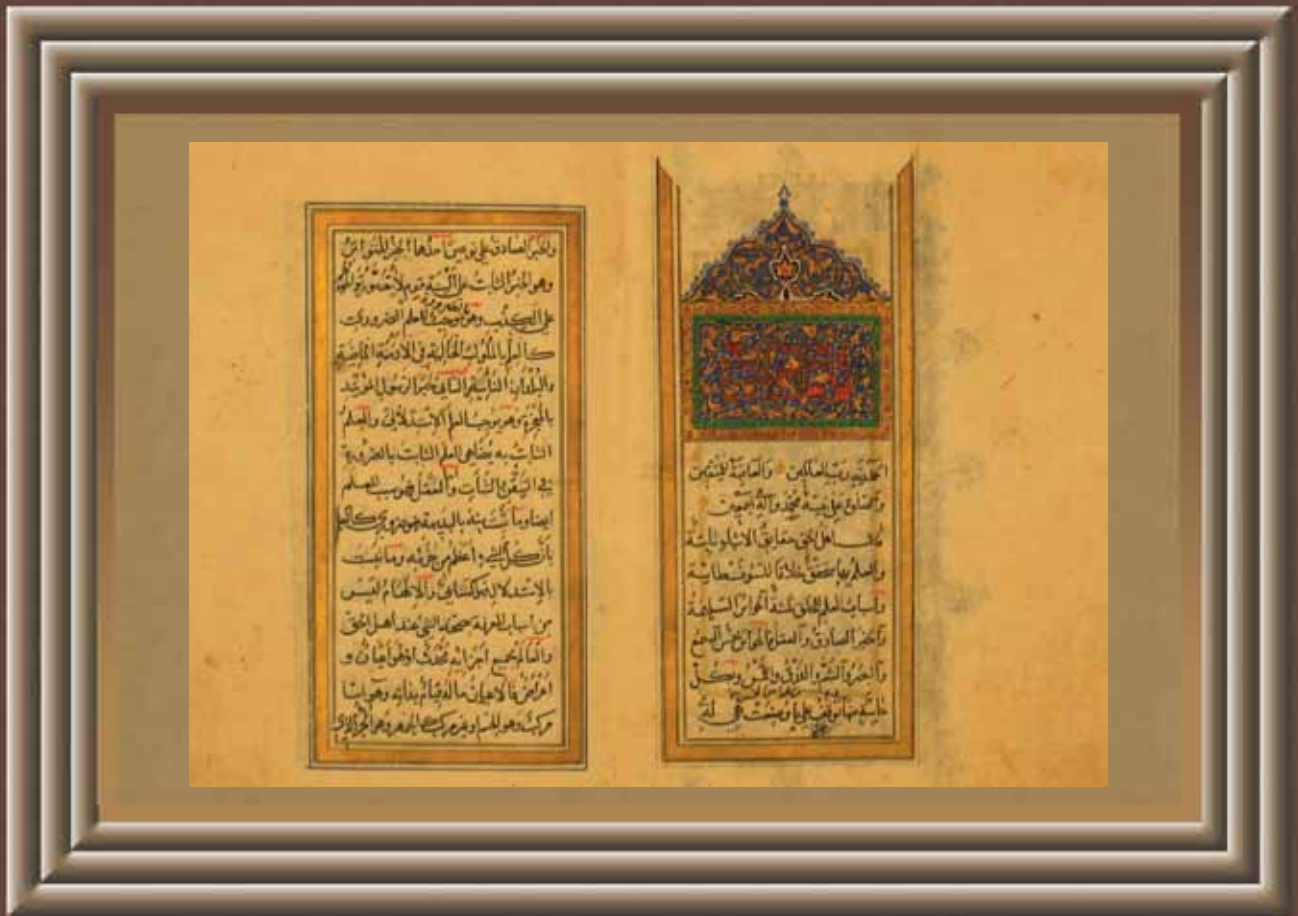 الحمد لله رب العالمين والعاقبة للمتقين
والصلوة على نبيه محمد وآله اجمعين
قال اهل الحق حقايق الاشياء ثابتة
والعلم بها متحقق خلافا للسوفسطائية
واسباب العلم للخلق ثلثة الحواس السليمة
والخبر الصادق والعقل فالحواس خمس السمع
والبصر والشم والذوق واللمس وبكل
حاسة منها توقف على ما وضعت هي له
والخبر الصادق على نوعين احدها الخبر المتواتر
وهو الخبر الثابت على السنة قوم لا يتصور تواطؤهم
على الكذب وهو موجب للعلم الضروري
كالعلم بالملوك الخالية في الازمنة الماضية
والبلدان النائية والثاني خبر الرسول المؤيد
بالمعجزة وهو يوجب العلم الاستدلالي والعلم
الثابت به يضاهي العلم الثابت بالضرورة
في التيقن والثبات والعقل فهو سبب للعلم
ايضا وما ثبت منه بالبديهة فهو ضروري كالعلم
بان كل الشيء اعظم من جزئه وما ثبت
بالاستدلال فهو اكتسابي والالهام ليس
من اسباب المعرفة بصحة الشيء عند اهل الحق
والعالم بجميع اجزائه محدث اذ هو اعيان و
اعراض فالاعيان ما له قيام بذاته وهو اما
مركب وهو الجسم او غير مركب كالجوهر وهو الجزء الذي